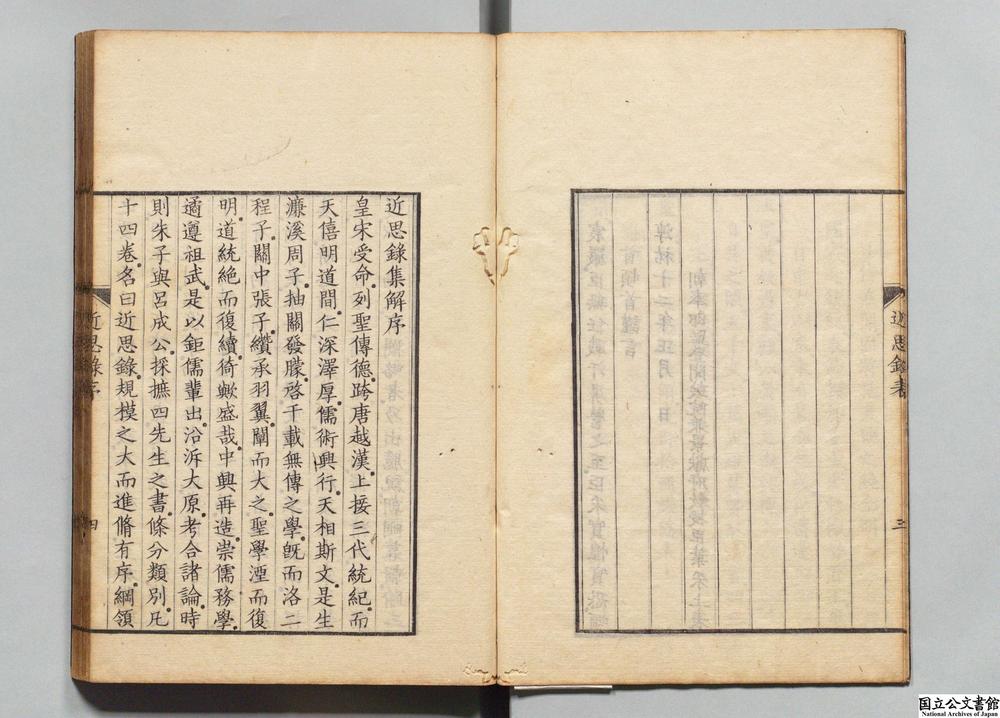 近思錄表
三
近思錄集解序
皇宋受命列聖傳德跨唐越漢上接三代統紀而
天僖明道間仁深澤厚儒術興行天相斯文是生
濂溪周子抽關發朦啓千載無傳之學旣而洛二
程子關中張子纘承羽翼闡而大之聖學湮而復
明道統絕而復續猗歟盛哉中興再造崇儒務學
遹遵祖武是以鉅儒輩出沿泝大原考合諸論時
則朱子與呂成公採摭四先生之書條分類別凡
十四卷名曰近思錄規模之大而進脩有序綱領
近思錄序
四
国立公文書館
National Archives of Japan